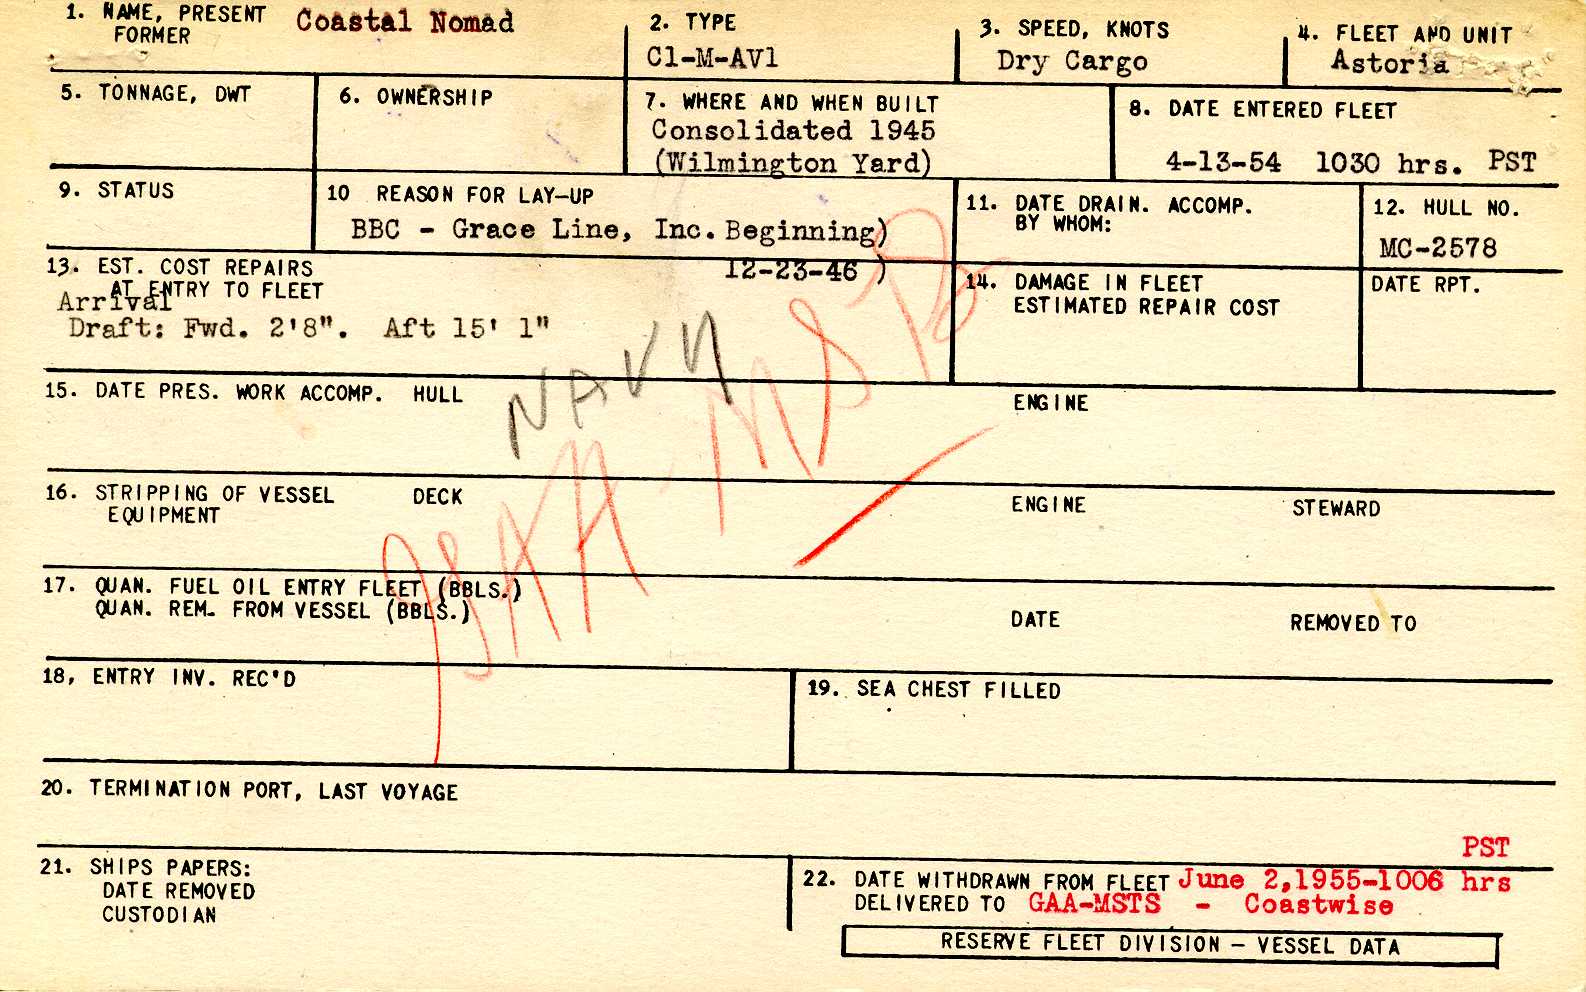 1. NAME, PRESENT Coastal Nomad
FORMER
2. TYPE
C1-M-AV1
3. SPEED, KNOTS
Dry Cargo
4. FLEET AND UNIT
Astoria
5. TONNAGE, DWT
6. OWNERSHIP
7. WHERE AND WHEN BUILT
Consolidated 1945
(Wilmington Yard)
8. DATE ENTERED FLEET
4-13-54 1030 hrs. PST
9. STATUS
10 REASON FOR LAY-UP
BBC - Grace Line, Inc. Beginning)
12-23-46 )
11. DATE DRAIN. ACCOMP.
BY WHOM:
12. HULL NO.
MC-2578
13. EST. COST REPAIRS
AT ENTRY TO FLEET
Arrival
Draft: Fwd. 2'8". Aft 15' 1"
14. DAMAGE IN FLEET
ESTIMATED REPAIR COST
DATE RPT.
NAVY
15. DATE PRES. WORK ACCOMP. HULL
ENGINE
16. STRIPPING OF VESSEL DECK
EQUIPMENT
ENGINE
STEWARD
17. QUAN. FUEL OIL ENTRY FLEET (BBLS.)
QUAN. REM. FROM VESSEL (BBLS.)
DATE
REMOVED TO
18, ENTRY INV. REC'D
19. SEA CHEST FILLED
20. TERMINATION PORT, LAST VOYAGE
21. SHIPS PAPERS:
DATE REMOVED
CUSTODIAN
PST
22. DATE WITHDRAWN FROM FLEET June 2,1955-1006 hrs
DELIVERED TO GAA-MSTS - Coastwise
RESERVE FLEET DIVISION - VESSEL DATA